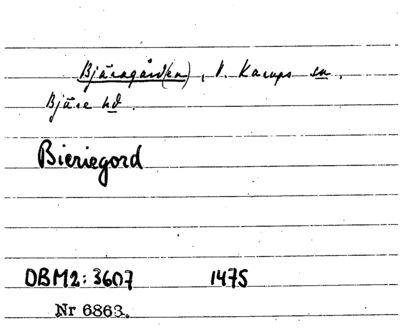 Bjäragård(en), V. Karups sn.
Bjäre hd.
Bieriegord
DBM2: 3607 1475
Nr 6863.